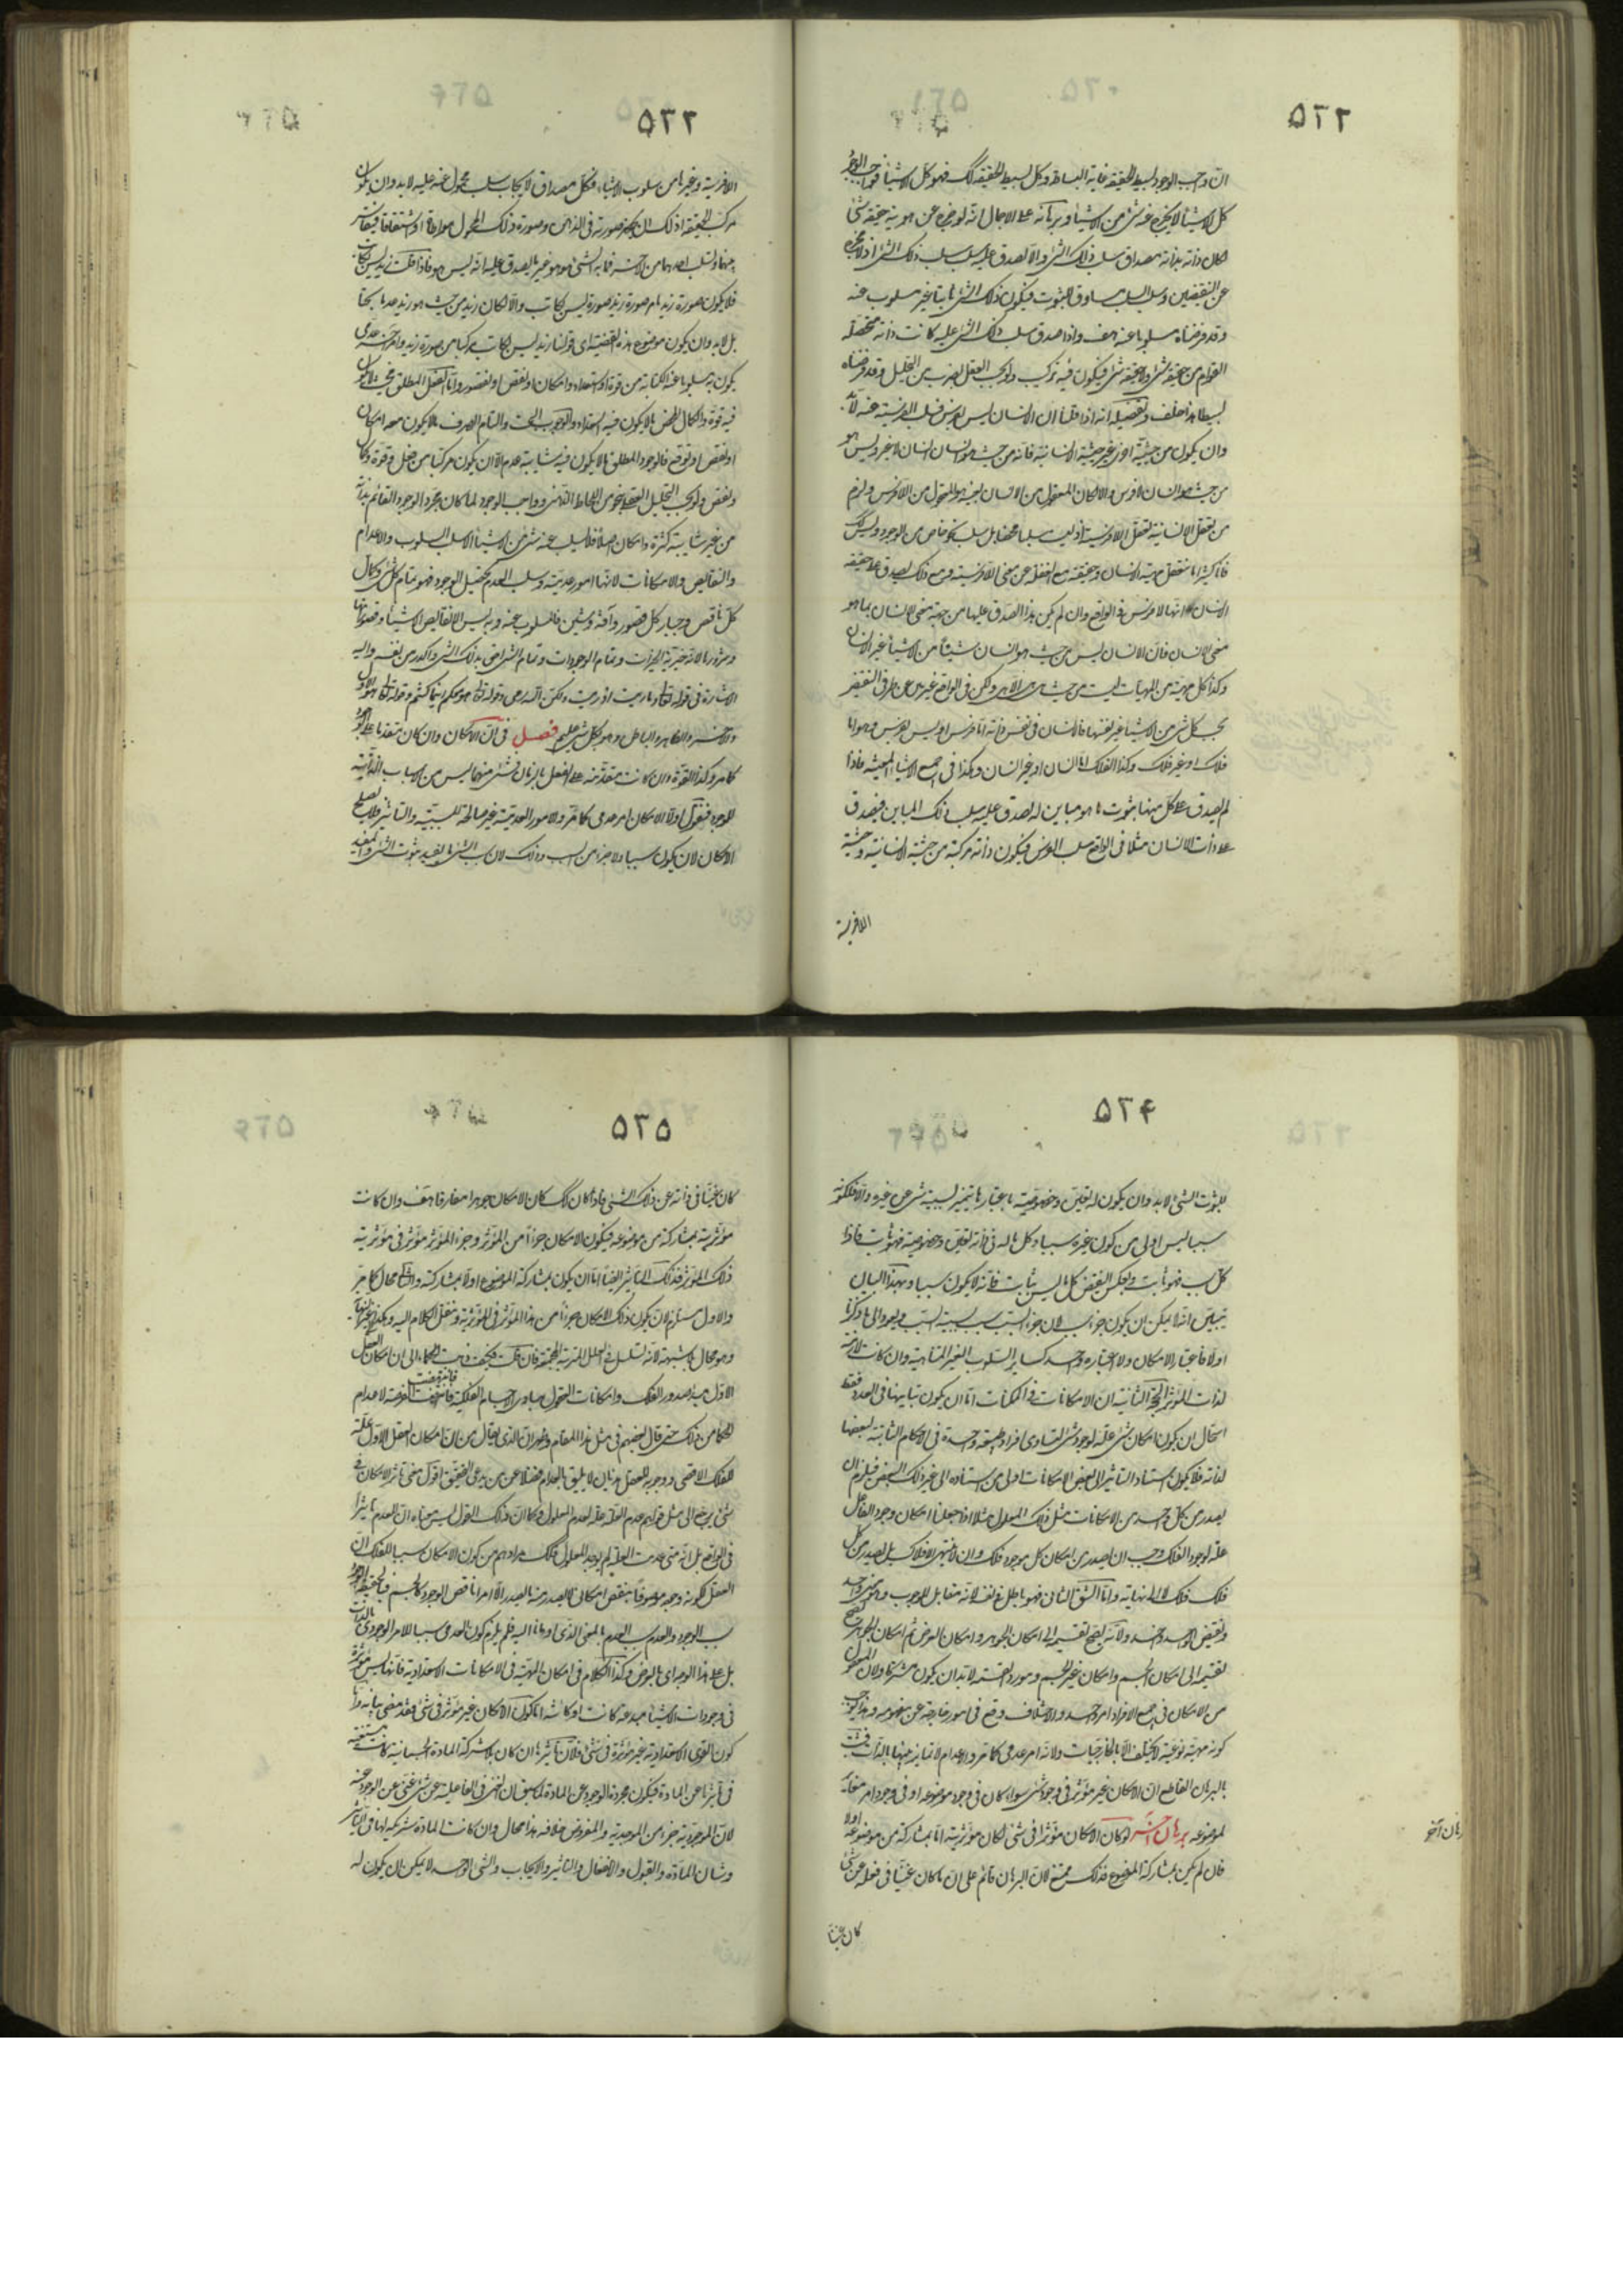 ٥٢٢
ان واجب الوجود بسيط الحقيقة غاية البساطة وكل بسيط الحقيقة كذلك فهو كل الاشياء فواجب الوجود
كل الاشياء لا يخرج عنه شئ من الاشياء وبرهانه على الاجمال انه لو خرج عن هوية حقيقته شئ
لكان ذاته بذاته مصداق سلب ذلك الشئ والا لصدق عليه سلب سلب ذلك الشئ اذ لا مخرج
عن النقيضين وسلب السلب مساوق للثبوت فيكون ذلك الشئ ثابتا غير مسلوب عنه
وقد فرضناه مسلوبا عنه هف واذا صدق سلب ذلك الشئ عليه كانت ذاته متحصلة
القوام من حقيقة شئ ولا حقيقة شئ فيكون فيه تركيب ولو بحسب العقل بضرب من التحليل وقد فرضناه
بسيطا هذا خلف وتفصيله انه اذا قلنا ان الانسان ليس بفرس فسلب الفرسية عنه لابد
وان يكون من حيثية اخرى غير حيثية الانسانية فانه من حيث هو انسان انسان لا غير وليس هو
من حيث هو انسان لا فرس والا لكان المعقول من الانسان بعينه هو المعقول من اللافرس ولزم
من تعقل الانسانية تعقل اللافرسية اذ ليست سلبا محضا بل سلب نحو خاص من الوجود وليس كذلك
فانا كثيرا ما نتعقل مهية الانسان وحقيقته مع الغفلة عن معنى اللافرسية ومع ذلك يصدق على حقيقة
الانسان انها لا فرس في الواقع وان لم يكن هذا الصدق عليها من جهة معنى الانسان بما هو
معنى الانسان فان الانسان ليس من حيث هو انسان شيئا من الاشياء غير الانسان
وكذا كل مهية من المهيات ليست من حيث هي هي الا هي ولكن في الواقع غير خال عن طرفي النقيض
بحسب كل شئ من الاشياء غير نفسها فالانسان في نفسه ذاته اما فرس او ليس بفرس وهو اما
فلك او غير فلك وكذا الفلك اما انسان او غير انسان وهكذا في جميع الاشياء المعينة فاذا
لم يصدق على كل منها ثبوت ما هو مباين له يصدق عليه سلب ذلك المباين فيصدق
على ذات الانسان مثلا في الواقع سلب الفرس فيكون ذاته مركبة من حيثية الانسانية وحيثية
اللافرسية
٥٢٣
اللافرسية وغيرها من سلوب الاشياء فكل مصداق لايجاب سلب محمول عنه عليه لابد وان يكون
مركب الحقيقة اذ لك ان تحضر صورته في الذهن وصورة ذلك المحمول مواطاة او اشتقاقا فتقايس
بينهما وتسلب احدهما من الاخر فما به الشئ هو هو غير ما يصدق عليه انه ليس هو فاذا قلت زيد ليس بكاتب
فلا يكون صورة زيد بما هي صورة زيد صورة ليس بكاتب والا لكان زيد من حيث هو زيد عدما بحتا
بل لابد وان يكون موضوع هذه القضية اى قولنا زيد ليس بكاتب مركبا من صورة زيد وامر اخر عدمى
يكون به مسلوبا عنه الكتابة من قوة او استعداد او امكان او نقص او قصور واما الفعل المطلق فحيث لا يكون
فيه قوة والكمال المحض ما لا يكون فيه استعداد والوجوب البحت والتمام الصرف ما لا يكون معه امكان
او نقص او توقع فالوجود المطلق ما لا يكون فيه شائبة عدم الا ان يكون مركبا من فعل وقوة وكمال
ونقص ولو بحسب التحليل العقلى بنحو من اللحاظ الذهنى وواجب الوجود لما كان مجرد الوجود القائم بذاته
من غير شائبة كثرة وامكان اصلا فلا يسلب عنه شئ من الاشياء الا سلب السلوب والاعدام
والنقايص والامكانات لانها امور عدمية وسلب العدم تحصيل الوجود فهو تمام كل شئ وكمال
كل ناقص وجبار كل قصور وآفة وشين فالمسلوب عنه وبه ليس الا نقايص الاشياء وقصوراتها
وشرورها لانه خيرية الخيرات وتمام الوجودات وتمام الشئ احق بذلك الشئ واكد من نفسه واليه
الاشارة في قوله تعالى وما رميت اذ رميت ولكن الله رمى وقوله تعالى هو معكم اينما كنتم وقوله تعالى هو الاول
والاخر والظاهر والباطن وهو بكل شئ عليم فصل في ان الامكان وان كان متقدما على الوجود
كما مر وكذا القوة وان كانت متقدمة على الفعل بالزمان في شئ منهما ليس من الاسباب الذاتية
للوجود فنقول اولا الامكان امر عدمى كما مر والامور العدمية غير صالحة للسببية والتأثير فلا يصلح
الامكان لان يكون سببا ولا جزءا من السبب وذلك لان سبب الشئ ما يفيد ثبوت الشئ والمفيد
٥٢٤
لثبوت الشئ لابد وان يكون له تعين وخصوصية باعتبارها يتميز لسببية شئ عن غيره والا فلكونه
سببا ليس اولى من كون غيره سببا وكل ما له في ذاته تعين وخصوصية فهو ثابت فاذا
كل سبب فهو ثابت وبعكس النقيض كل ما ليس بثابت فانه لا يكون سببا وبهذا البيان
يتبين انه لا يمكن ان يكون جزء سبب لان جزء السبب سبب لسببية السبب ويعود الى ما ذكرنا
اولا فاعتبار الامكان ولا اعتباره واحد كساير السلوب الغير المتناهية وان كانت لازمة
لذات المؤثر الحجة الثانية ان الامكانات في الممكنات اما ان يكون تباينها في العدد فقط
استحال ان يكون امكان شئ علة لوجود شئ لتساوى افراد طبيعة واحدة في الاحكام الثابتة لبعضها
لذاته فلا يكون استناد التأثير الى بعض الامكانات اولى من استناده الى غير ذلك البعض فيلزم ان
يصدر من كل واحد من الامكانات مثل ذلك المعلول مثلا اذا جعلنا امكان وجود العقل
علة لوجود الفلك وجب ان يصدر من امكان كل موجود فلك وان لا ينتهى الافلاك بل يصدر من كل
فلك فلك لا الى نهاية واما الشق الثانى فهو باطل في نفسه لانه مقابل للوجوب وهو معنى واحد
ونقيض الواحد واحد ولانه يصح تقسيمه الى امكان الجوهر وامكان العرض ثم امكان الجوهر يصح
تقسيمه الى امكان الجسم وامكان غير الجسم ومورد القسمة لابد ان يكون مشتركا ولان المعقول
من الامكان في جميع الافراد امر واحد والاختلاف وقع في امور خارجة عن مفهومه وهذا يوجب
كونه مهية نوعية لا يختلف الا بالخارجيات ولانه امر عدمى كما مر والاعدام لا تمايز بينها بالذات فثبت
بالبرهان القاطع ان الامكان غير مؤثر في وجود شئ سواء كان في وجود موضوعه او في وجود امر مغاير
لموضوعه برهان آخر لو كان الامكان مؤثرا في شئ لكان مؤثريته اما بمشاركة من موضوعه اولا
فان لم يكن بمشاركة الموضوع فذلك ممتنع لان البرهان قائم على ان ما كان غنيا في فعله عن شئ
برهان آخر
كان غنيا
٥٢٥
كان غنيا في ذاته عن ذلك الشئ فاذا كان كذلك كان الامكان جوهرا مفارقا هف وان كانت
مؤثريته بمشاركة من موضوعه فيكون الامكان جزءا من المؤثر وجزء المؤثر مؤثر في مؤثرية
ذلك المؤثر فذلك التأثير ايضا اما ان يكون بمشاركة الموضوع اولا بمشاركته والثانى محال كما مر
والاول مستلزم لان يكون ذلك الامكان جزءا من هذا المؤثر في المؤثرية وننقل الكلام اليه وهكذا الى غير النهاية
وهو محال لا شبهة لانه تسلسل في العلل المترتبة المجتمعة فان قلت فكيف ذهبت الحكماء الى ان امكان العقل
الاول مبدأ صدور الفلك وامكانات العقول مباد لاجسام الفلكية
للحكماء من ذلك حتى قال بعضهم في مثل هذا المقام وظهر ان الذى يقال من ان امكان العقل الاول علة
للفلك الاقصى ووجوبه للعقل هذيان لا يليق بالعوام فضلا عمن يدعى التحقيق اقول معنى تأثير الامكان في
شئ يرجع الى مثل قولهم عدم العلة علة لعدم المعلول وكما ان ذلك القول ليس معناه ان للعدم تأثيرا
في الواقع بل انه متى عدمت العلة لم يوجد المعلول فكذلك مرادهم من كون الامكان سببا للفلك ان
العقل لكونه وجوده موصوفا بنقص امكانى لا يصدر منه ما يصدر الا امرا ناقص الوجود كالجسم فبالحقيقة الوجود
سبب الوجود والعدم سبب العدم بالمعنى الذى اومأنا اليه فلم يلزم كون العدمى سببا للامر الوجودى بالذات
بل على هذا الوجه اى بالعرض وكذا الكلام في امكان المهية في الامكانات الاستعدادية فانها ليس مؤثرة
في وجودات الاشياء مبدعة كانت او كائنة اما كون الامكان غير مؤثر في شئ فقد مضى بيانه واما
كون القوى الاستعدادية غير مؤثرة في شئ فلان تأثيرها ان كان بلا شركة المادة الجسمانية كانت مستغنية
في تأثيرها عن المادة فيكون مجردة الوجود عن المادة لما سبق ان الغنى في الفاعلية عن شئ غنى عن الوجود عنه
لان الموجودية جزء من الموجدية والمفروض خلافه هذا محال وان كانت المادة شريكة لها في التأثير
وشأن المادة والقبول والانفعال والتأثير والايجاب والشئ الواحد لا يمكن ان يكون له